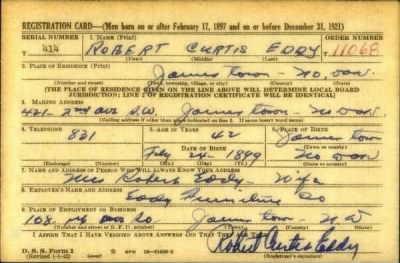 REGISTRATION CARD—(Men born on or after February 17, 1897 and on or before December 31, 1921)
SERIAL NUMBER 1. NAME (Print) ORDER NUMBER
414 ROBERT CURTIS EDDY 11068
(First) (Middle) (Last)
2. PLACE OF RESIDENCE (Print)
James town No. Dak
(Number and street) (Town, township, village, or city) (County) (State)
[THE PLACE OF RESIDENCE GIVEN ON THE LINE ABOVE WILL DETERMINE LOCAL BOARD
JURISDICTION; LINE 2 OF REGISTRATION CERTIFICATE WILL BE IDENTICAL]
3. MAILING ADDRESS
421- 2nd ave S.W. James town - No Dak
[Mailing address if other than place indicated on line 2. If same insert word same]
4. TELEPHONE 5. AGE IN YEARS 6. PLACE OF BIRTH
821 42 James town
DATE OF BIRTH (Town or county)
Feb 24 - 1899 No Dak
(Exchange) (Number) (Mo.) (Day) (Yr.) (State or country)
7. NAME AND ADDRESS OF PERSON WHO WILL ALWAYS KNOW YOUR ADDRESS
Mrs Robert Eddy - Wife
8. EMPLOYER'S NAME AND ADDRESS
Eddy Furniture Co
9. PLACE OF EMPLOYMENT OR BUSINESS
108 ave So. James town - N D
(Number and street or R. F. D. number) (Town) (County) (State)
I AFFIRM THAT I HAVE VERIFIED ABOVE ANSWERS AND THAT THEY ARE TRUE.
D. S. S. Form 1
(Revised 1-1-42) (over) Robert Curtis Eddy
(Registrant's signature)